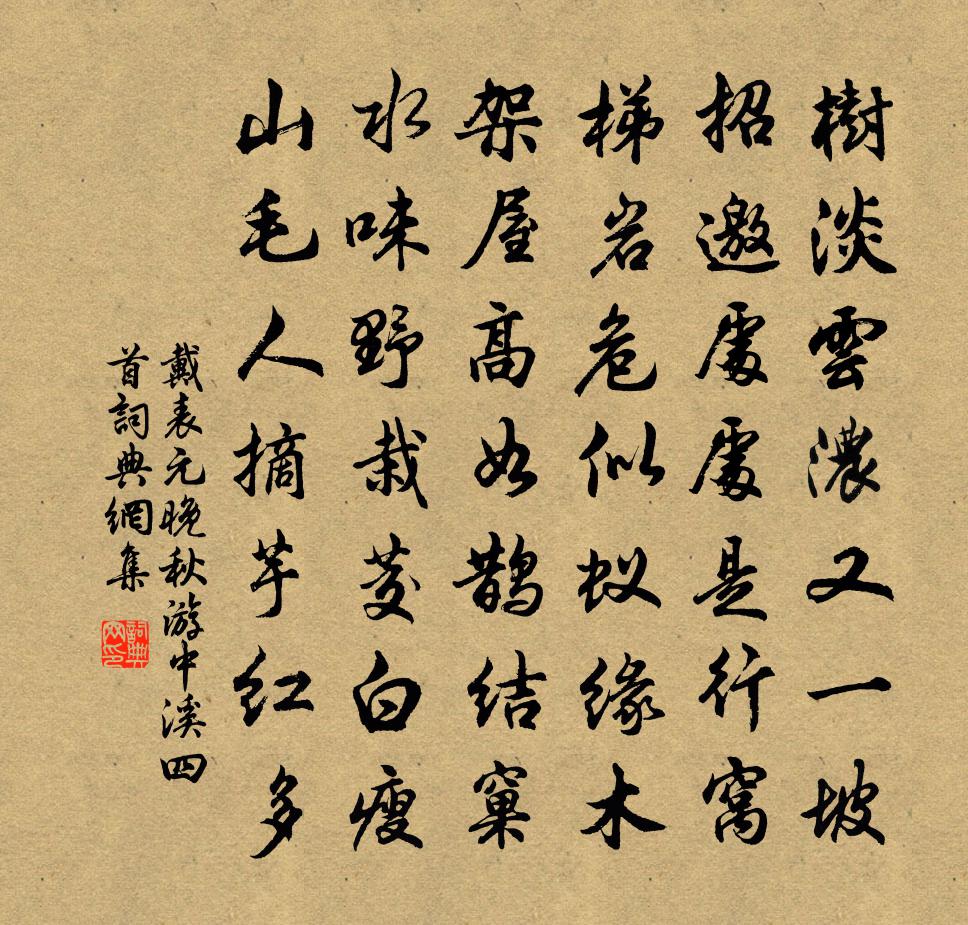 樹淡雲濃又一坡
招邀處處是行窩
梯岩危似蚁緣木
架屋高如鵲結窠
水味野栽茭白瘦
山毛人摘芋紅多
戴表元晚秋游中溪四
首詞典網集
詞典网印